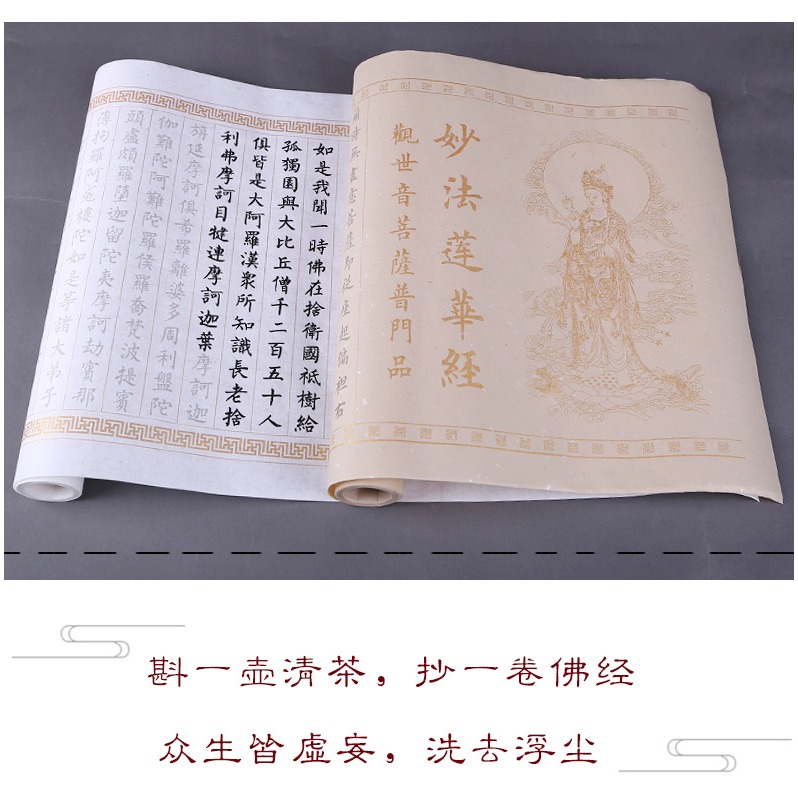 妙法莲華經
觀世音菩薩普門品
爾時無盡意菩薩即從座起偏袒右
如是我聞一時佛在捨衛國祗樹給
孤獨園與大比丘僧千二百五十人
俱皆是大阿羅漢衆所知識長老捨
利弗摩訶目犍連摩訶迦葉摩訶迦
旃延摩訶俱希羅離婆多周利盤陀
伽難陀阿難陀羅侯羅喬梵波提賓
頭盧頗羅墮迦留陀夷摩訶劫賓那
薄拘羅阿㝹樓陀如是等諸大弟子
斟一壶清茶，抄一卷佛经
众生皆虛妄，洗去浮尘